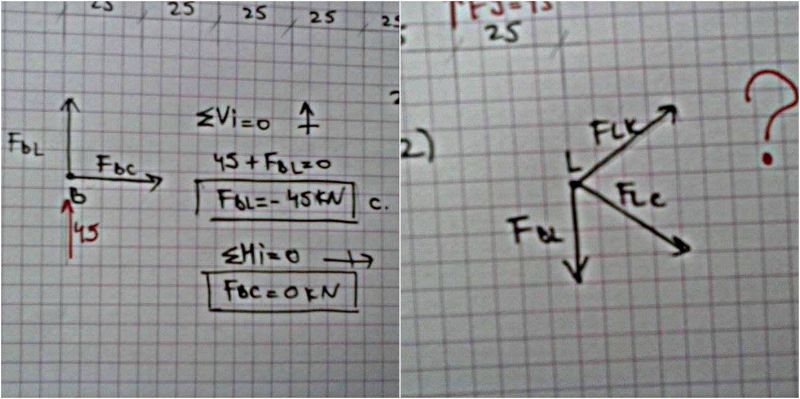 25 25 25 25
FBL
FBC
B
45
ΣVi=0
45+FBL=0
FBL=-45KN C.
ΣHi=0
FBC=0KN
25
2)
L
FLK
FLC
FBL
?